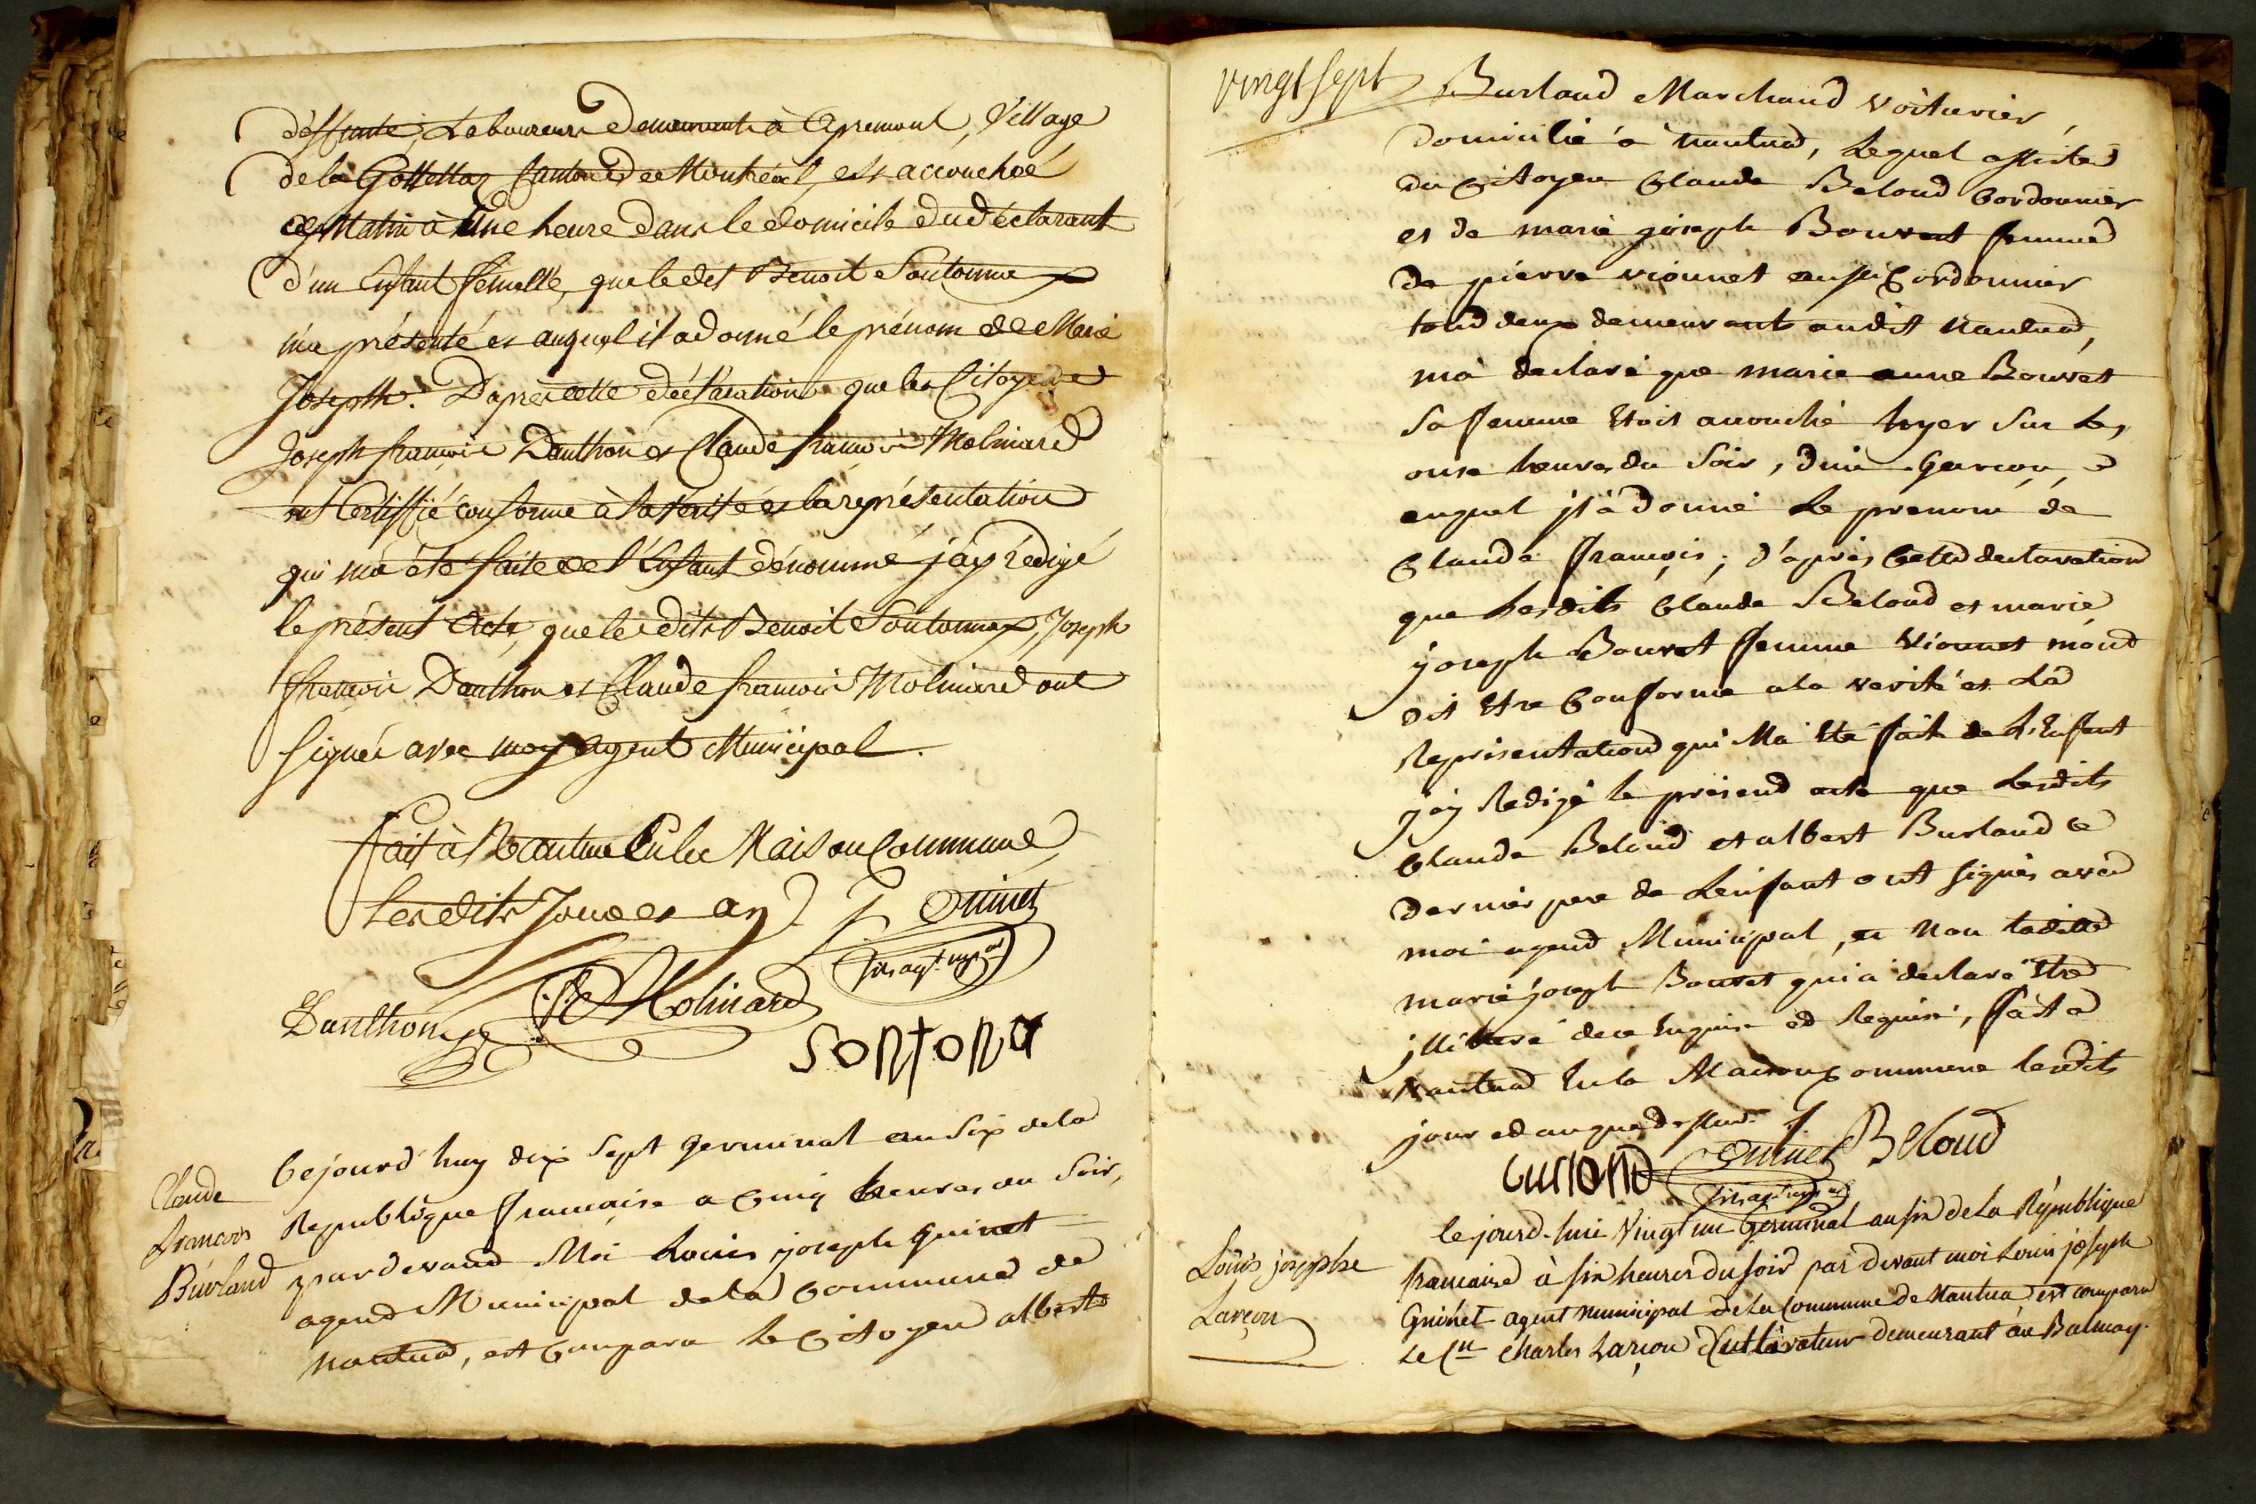 deffunte, Laboureurs demeurants à Apremont, Village
de la Gottettaz Canton de Montréal, est accouchée
ce Matin à Une heure dans le domicile du déclarant
d'un Enfant femelle, que ledit Benoit Sontonnax
m'a présenté et auquel il a donné le prénom de Marie
Joseph. D'après cette déclaration que les Citoyens
Joseph françois Danthon et Claude françois Molinard
ont Certiffié conforme à la Vérité et la représentation
qui m'a été faite de l'Enfant dénommé j'ay rédigé
le présent Acte, que lesdits Benoit Sontonnax, Joseph
françois Danthon et Claude françois Molinard ont
signés avec moy Agent Municipal.
fait à Nantua En la Maison Commune
lesdits Jour et an
Guinet
Danthon
Molinard
sontona
Claude
francois
Burland
Cejourd'huy dix sept germinal an Six de la
Republique francaise a Cinq heures du Soir,
pardevand Moi Louis joseph Guinet
agend Municipal de la Commune de
nantua, est Compara le Citoyen albert
vingt sept
Burland Marchand voiturier
domicilié a nantua, Lequel assisté
du Citoyen Claude Beloud Cordonnier
et de marie joseph Bouvet femme
de pierre vionnet aussi Cordonnier
tous deux demeurants audit nantua,
m'a declaré que marie anne Bouvet
sa femme Etoit accouché hyer sur Les
onse heures du Soir, d'un Garcon,
auquel jl a donné Le prenom de
Claude françois; d'après Cette declaration
que Lesdits Claude Beloud et marie
joseph Bouvet femme Vionnet m'ond
dit Etre Conforme a la verité et La
Representation qui M'a Eté fait de L'Enfant
j'ay Redigé le présend acte que Lesdits
Claude Beloud et albert Burland Ce
dernier pere de Lenfant ont signés avec
moi agend Municipal, et non ladite
marie joseph Bouvet qui a declaré Etre
jllitteré de ce Enquise ed Requise, fait a
Nantua En la Maison Commune lesdits
jour ed an que dessus
Burland
Guinet
Beloud
Louis josephe
Larçon
Cejourd-hui Vingt un Germinal an six de La République
francaise à six heures du soir par devant moi Louis joseph
Guinet agent municipal de La Commune de Nantua est comparu
Le Cen Charles Larçon Cultivateur demeurant au Balmay